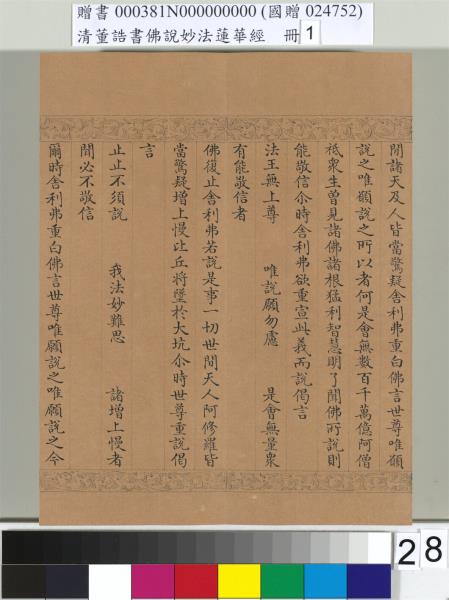 贈書 000381N000000000 (國贈 024752)
清董誥書佛說妙法蓮華經 冊 1
間諸天及人皆當驚疑舍利弗重白佛言世尊唯願
說之唯願說之所以者何是會無數百千萬億阿僧
祇衆生曾見諸佛諸根猛利智慧明了聞佛所說則
能敬信尒時舍利弗欲重宣此義而說偈言
法王無上尊 唯說願勿慮 是會無量衆
有能敬信者
佛復止舍利弗若說是事一切世間天人阿修羅皆
當驚疑增上慢比丘將墜於大坑尒時世尊重說偈
言
止止不須說 我法妙難思 諸增上慢者
聞必不敬信
爾時舍利弗重白佛言世尊唯願說之唯願說之今
28